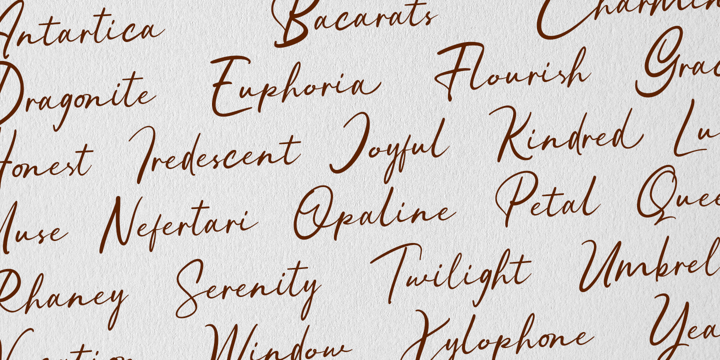 Antartica Bacarats Charmin
Dragonite Euphoria Flourish Grac
Honest Iredescent Joyful Kindred Lu
Muse Nefertari Opaline Petal Quee
Rhaney Serenity Twilight Umbrel
Vacation Window Xylophone Yea